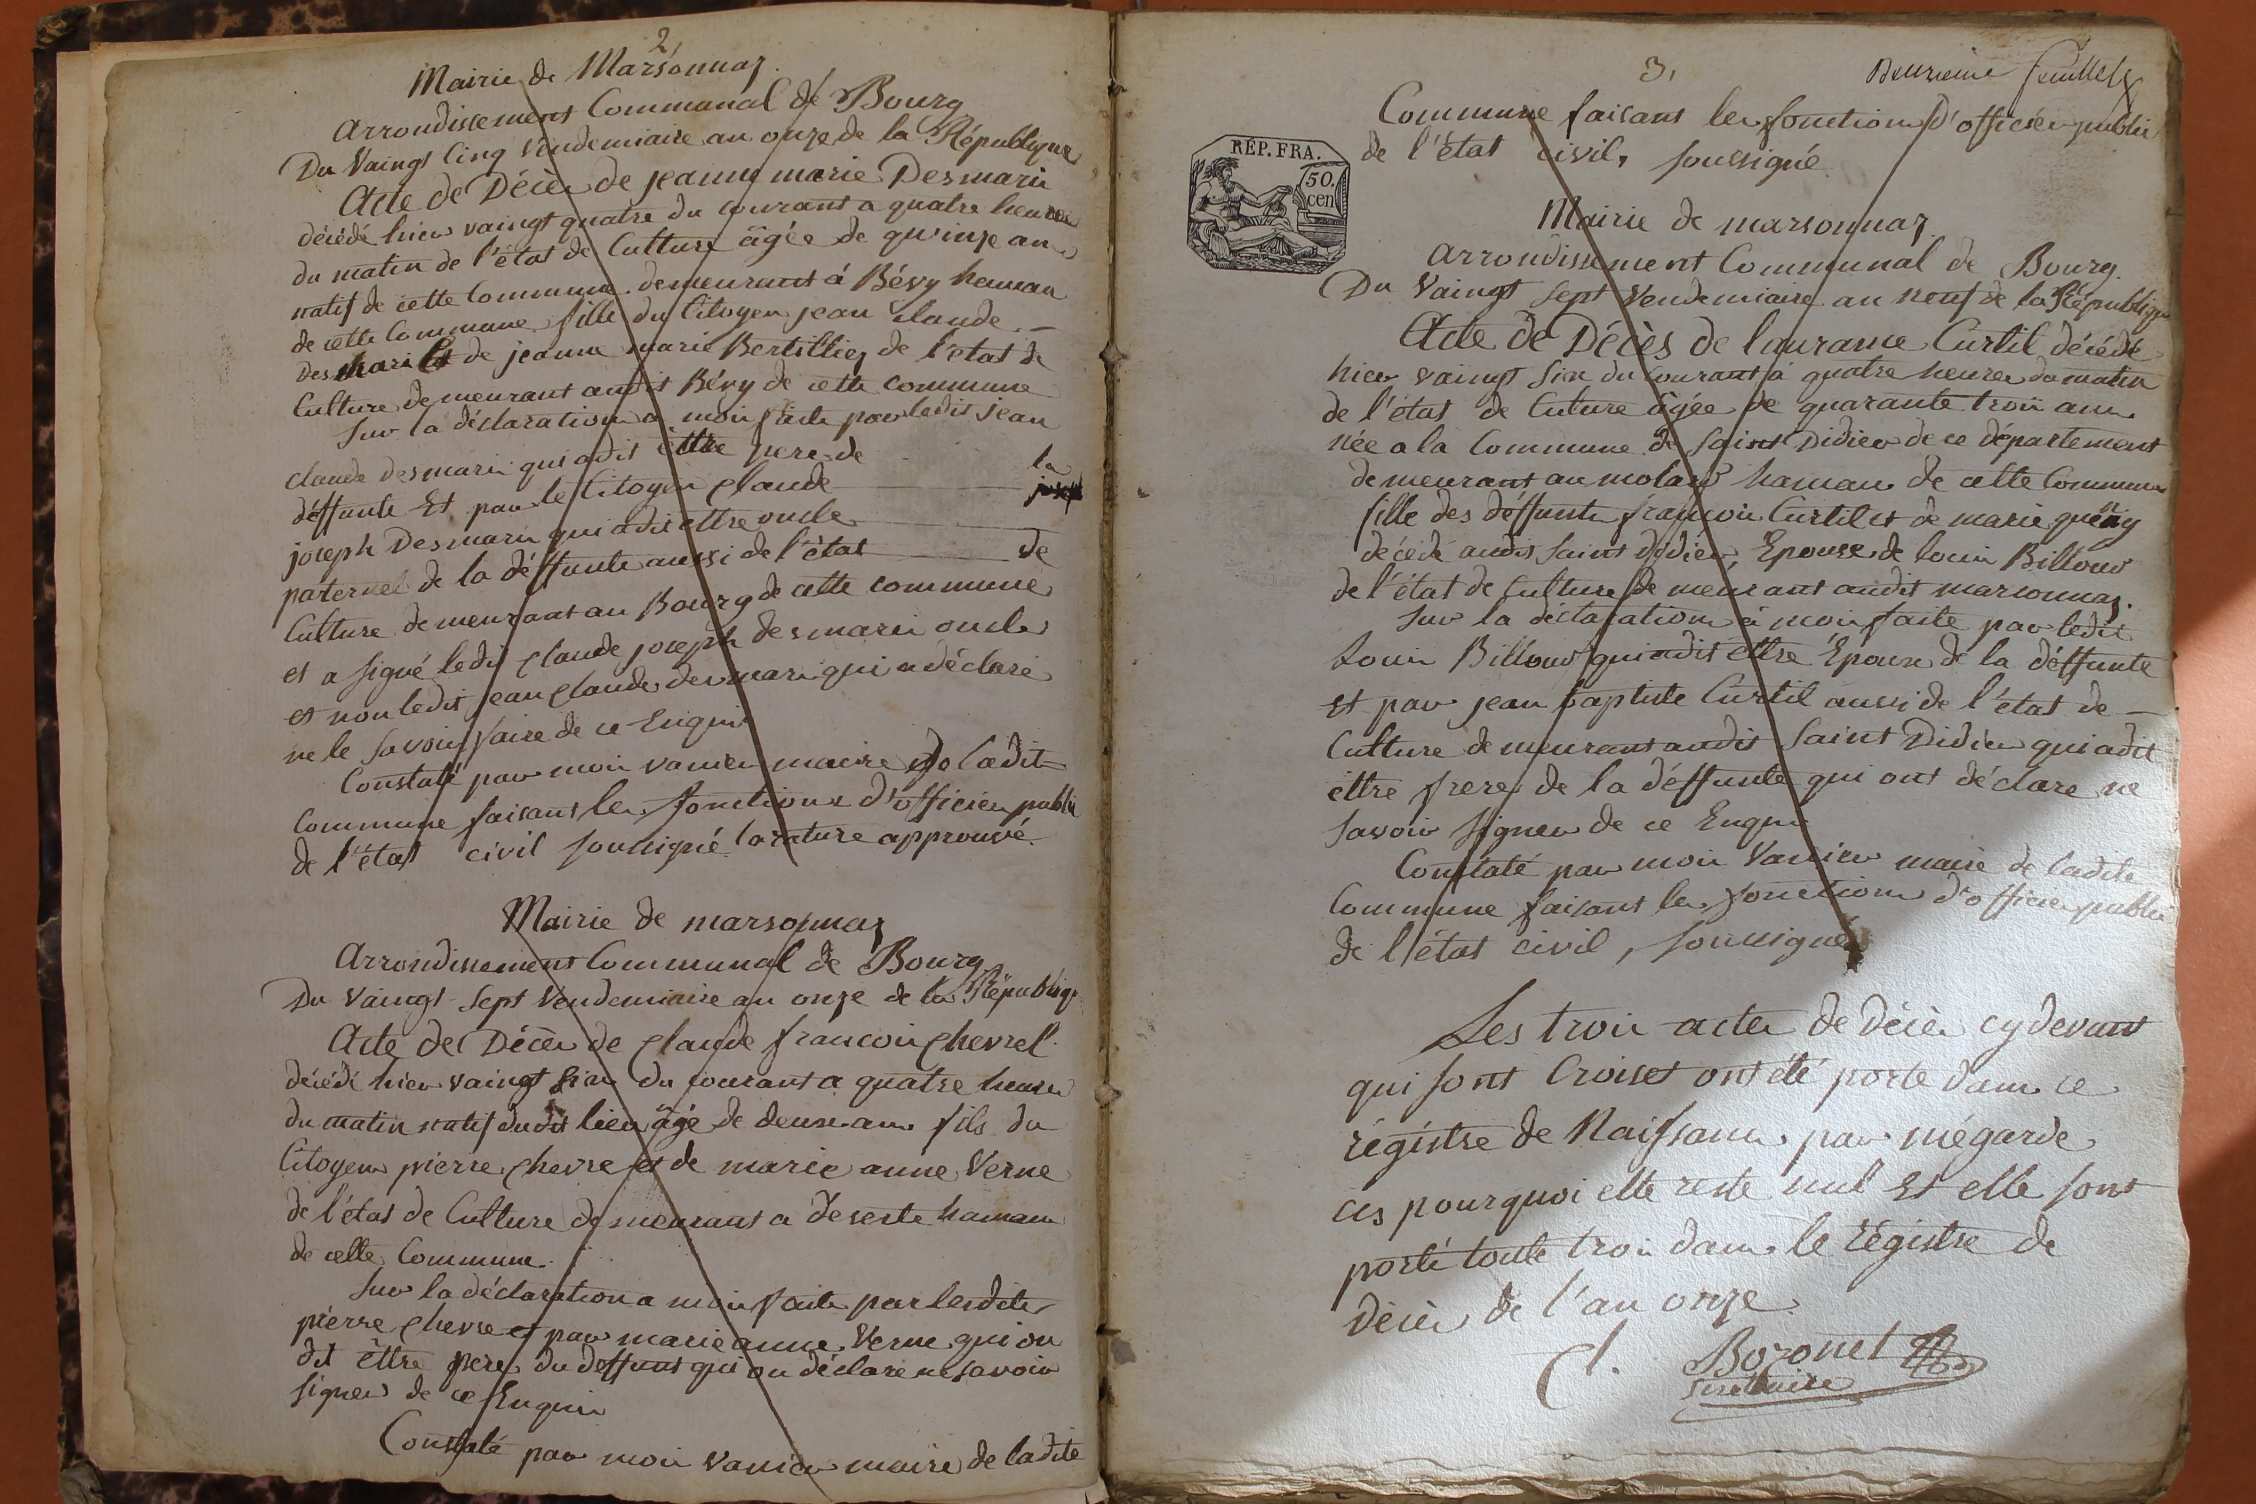 2
Mairie de Marsonnaz.
arrondissement Communal de Bourg
Du Vaingt Cinq Vendemiaire an onze de la Républiqne
Acte de Décès de jeanne marie Desmaris
décédé hier vaingt quatre du courant a quatre heures
du matin de l'état de Culture âgée de quinze ans
natif de cette Commune demeurant á Bévy hameau
de cette Commune fille du Citoyen jean claude
des maris et de jeanne marie Bertilliez de l'etat de
Culture demeurant audit Bévy de cette commune
Sur la déclaration a moi faite par ledit jean
claude desmaris qui a dit être pere de la
déffunte Et par le Citoyen claude joseph
joseph Desmaris qui a dit ettre oncle
paternel de la déffunte aussi de l'état de
Culture demeurant au Bourg de cette commune
et a signé ledit claude joseph desmaris oncle
et non ledit jean claude desmaris qui a déclaré
ne le savoir faire de ce Enquis
Constaté par moi vanier maire de ladite
Commune faisant les fonctions d'officier public
de l'état civil soussigné la rature approuvé.
Mairie de marsonnaz
Arrondissement Communal de Bourg
Du Vaingt Sept Vendemiaire an onze de la Républiq
Acte de Décès de claude francois chevrel
décédé hier vaingt six du courant a quatre heures
du matin natif dudit lieu âgé de deux ans fils du
Citoyen pierre chevre et de marie anne Verne
de l'état de Culture demeurant a deserte hamau
de cette Commune.
Sur la déclaration a moi faite par lesdits
pierre chevre et par marie anne Verne qui on
dit être pere du deffunt qui on déclaré ne savoir
signer de ce Enquis
Constaté par moi vanier maire de ladite
3,
Deuxieme feuillet
Commune faisant les fonctions d'officier public
de l'état civil, soussigné
RÉP. FRA.
50.
cen
Mairie de marsonnaz.
arrondissement Communal de Bourg.
Du Vaingt Sept Vendemiaire an neuf de la République
Acte de Décès de laurance Curtil décédé
hier vaingt six du courant á quatre heures du matin
de l'état de Cuture âgée de quarante trois ans
née a la Commune de Saint Didier de ce département
demeurant au molard hamau de cette Commune
fille des déffunts françois Curtil et de marie
décédé audit saint didier, Epouse de louis Billoud
de l'état de Culture demeurant audit marsonnaz.
Sur la déclaration á moi faite par ledit
Louis Billoud qui a dit ettre Epoux de la déffunte
et par jean baptiste Curtil aussi de l'état de
Culture demeurant audit Saint Didier qui a dit
êttre frere de la déffunte qui ont déclare ne
savoir signer de ce Enquis
Constaté par moi Vanier maire de ladite
Commune faisant les fonctions d'officier public
de l'état civil, soussigné
Les trois actes de décès cy devant
qui sont Croiset ont été porte dans ce
régistre de Naissance par mégarde
ces pourquoi elle reste nul Et elle sont
porté toute trois dans le régistre de
décès de l'an onze
Cl. Bozonet
Secretaire